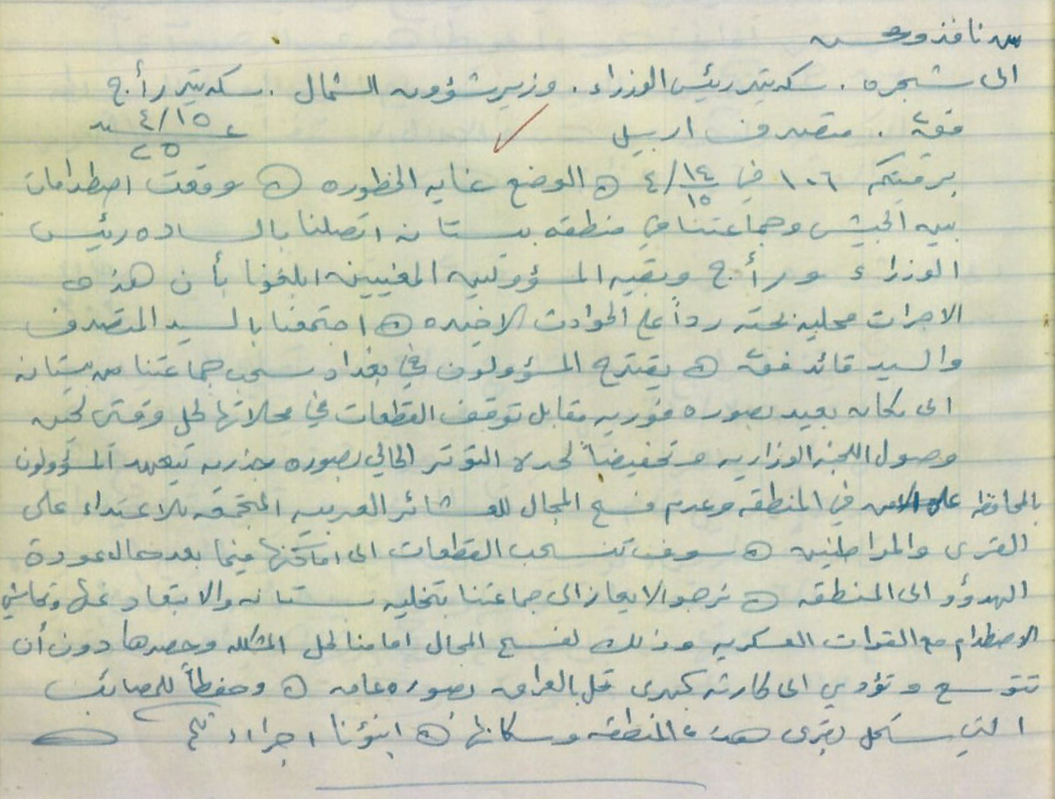 من نافذ ومحسن
الى شجره . سكرتير رئيس الوزراء . وزير شؤون الشمال . سكرتير ر أ ج
فق٢ . متصرف اربيل ٤/١٥
٢٥
برقيتكم ١٠٦ في ٤/١٤ ه الوضع غايه الخطوره ه وقعت اصطدامات
١٥
بين الجيش وجماعتنا في منطقه بستانه اتصلنا بالساده رئيس
الوزراء و ر أ ج وبقيه المسؤولين المعنيين ابلغونا بأن هذه
الاجرات محليه بحته رداً على الحوادث الاخيره ه اجتمعنا بالسيد المتصرف
والسيد قائد فق٢ ه يقترح المسؤولون في بغداد سحب جماعتنا من بستانه
الى مكان بعيد بصوره فوريه مقابل توقف القطعات في محلاتها لحل وقتي لحين
وصول اللجنه الوزاريه وتخفيضاً لحدة التوتر الحالي بصوره جذريه تتعهد المسؤولون
بالمحافظه على الامن في المنطقه وعدم فسح المجال للعشائر العربيه المجتمعه للاعتداء على
القرى والمواطنين ه سوف تنسحب القطعات الى اماكنها فيما بعد حال عودة
الهدوؤ الى المنطقه ه نرجو الايعاز الى جماعتنا بتخليه بستانه والابتعاد عنها وتحاشي
الاصطدام مع القوات العسكريه وذلك لفسح المجال امامنا لحل المشكله وحصرها دون أن
تتوسع وتؤدي الى كارثه كبرى تحل بالعراق بصوره عامه ه وحفظاً للمصائب
التي ستحل بقرى هذه المنطقه وسكانها ه انبؤنا اجراءتكم